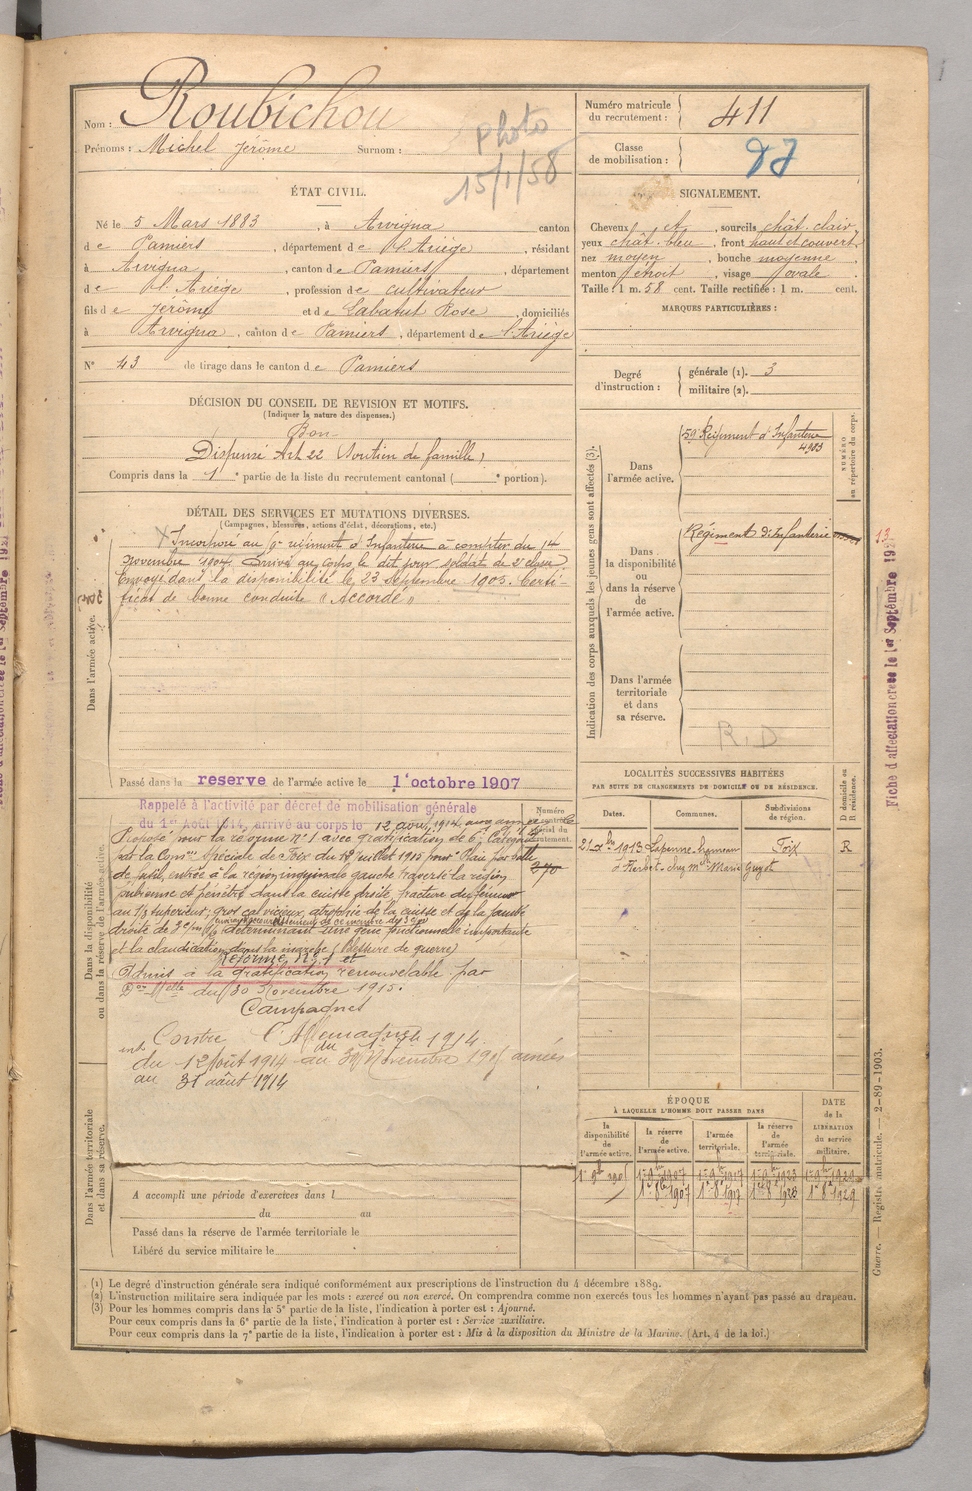 Nom : Roubichou
Prénoms : Michel Jérôme Surnom :
Photo
15/1/58
Numéro matricule du recrutement : 411
Classe de mobilisation :
ÉTAT CIVIL.
Né le 5 Mars 1883, à Arvigna canton
de Pamiers, département de l'Ariège, résidant
à Arvigna, canton de Pamiers, département
de l'Ariège, profession de cultivateur
fils de Jérôme et de Labatut Rose, domiciliés
à Arvigna, canton de Pamiers, département de l'Ariège
N° 43 de tirage dans le canton de Pamiers
SIGNALEMENT.
Cheveux et, sourcils chât. clair,
yeux chât. bleu, front haut et couvert,
nez moyen, bouche moyenne,
menton étroit, visage ovale.
Taille : 1 m. 58 cent. Taille rectifiée : 1 m. cent.
MARQUES PARTICULIÈRES :
Degré d'instruction : générale (1). 3
militaire (2).
DÉCISION DU CONSEIL DE REVISION ET MOTIFS.
(Indiquer la nature des dispenses.)
Bon
Dispensé Art 22 (Soutien de famille)
Compris dans la 1e partie de la liste du recrutement cantonal ( e portion).
DÉTAIL DES SERVICES ET MUTATIONS DIVERSES.
(Campagnes, blessures, actions d'éclat, décorations, etc.)
Dans l'armée active.
Incorporé au 9e régiment d'Infanterie à compter du 14
Novembre 1904. Arrivé au corps le dit jour soldat de 2e classe.
Envoyé dans la disponibilité le 23 Septembre 1905. Certi-
ficat de bonne conduite "Accordé"
Passé dans la reserve de l'armée active le 1er octobre 1907
Indication des corps auxquels les jeunes gens sont affectés (3).
NUMÉRO au répertoire du corps.
Dans l'armée active.
59e Régiment d'Infanterie
Dans la disponibilité ou dans la réserve de l'armée active.
Régiment d'Infanterie
Dans l'armée territoriale et dans sa réserve.
R.D
Fiche d'affectation créée le 1er Septembre
Dans la disponibilité ou dans la réserve de l'armée active.
Rappelé à l'activité par décret de mobilisation générale
du 1er Août 1914, arrivé au corps le 12 août 1914
Proposé pour la réforme N° 1 avec gratification de 6e Catégorie
par la Comon spéciale de Foix du Juillet 1915 pour "Plaie par balle
de fusil, entrée à la région inguinale gauche traversé la région
pubienne et pénétré dans la cuisse droite, fracture du fémur
au 1/3 supérieur; gros cal vicieux, atrophie de la cuisse et de la jambe
droite de déterminant une gêne fonctionnelle importante
et la claudication dans la marche (blessure de guerre)
Réformé N° 1 et
Admis à la gratification renouvelable par
du 30 Novembre 1915.
Campagnes
Contre l'Allemagne
du 12 Août 1914 au 30 Novembre
au 31 août 1914
LOCALITÉS SUCCESSIVES HABITÉES
PAR SUITE DE CHANGEMENTS DE DOMICILE OU DE RÉSIDENCE.
D domicile ou R résidence.
Dates. Communes. Subdivisions de région.
1913 Lapenne hameau Foix R
Guyot
ÉPOQUE
À LAQUELLE L'HOMME DOIT PASSER DANS
la disponibilité de l'armée active.
la réserve de l'armée active.
l'armée territoriale.
la réserve de l'armée territoriale.
DATE de la LIBÉRATION du service militaire.
1er 8bre 1907 1er 8bre 1917 1er 8bre 1923 1er 8bre 1929
Dans l'armée territoriale et dans sa réserve.
A accompli une période d'exercices dans l
du au
Passé dans la réserve de l'armée territoriale le
Libéré du service militaire le
(1) Le degré d'instruction générale sera indiqué conformément aux prescriptions de l'instruction du 4 décembre 1889.
(2) L'instruction militaire sera indiquée par les mots : exercé ou non exercé. On comprendra comme non exercés tous les hommes n'ayant pas passé au drapeau.
(3) Pour les hommes compris dans la 5e partie de la liste, l'indication à porter est : Ajourné.
Pour ceux compris dans la 6e partie de la liste, l'indication à porter est : Service auxiliaire.
Pour ceux compris dans la 7e partie de la liste, l'indication à porter est : Mis à la disposition du Ministre de la Marine. (Art. 4 de la loi.)
Guerre. — Registre matricule. — 2-89-1903.